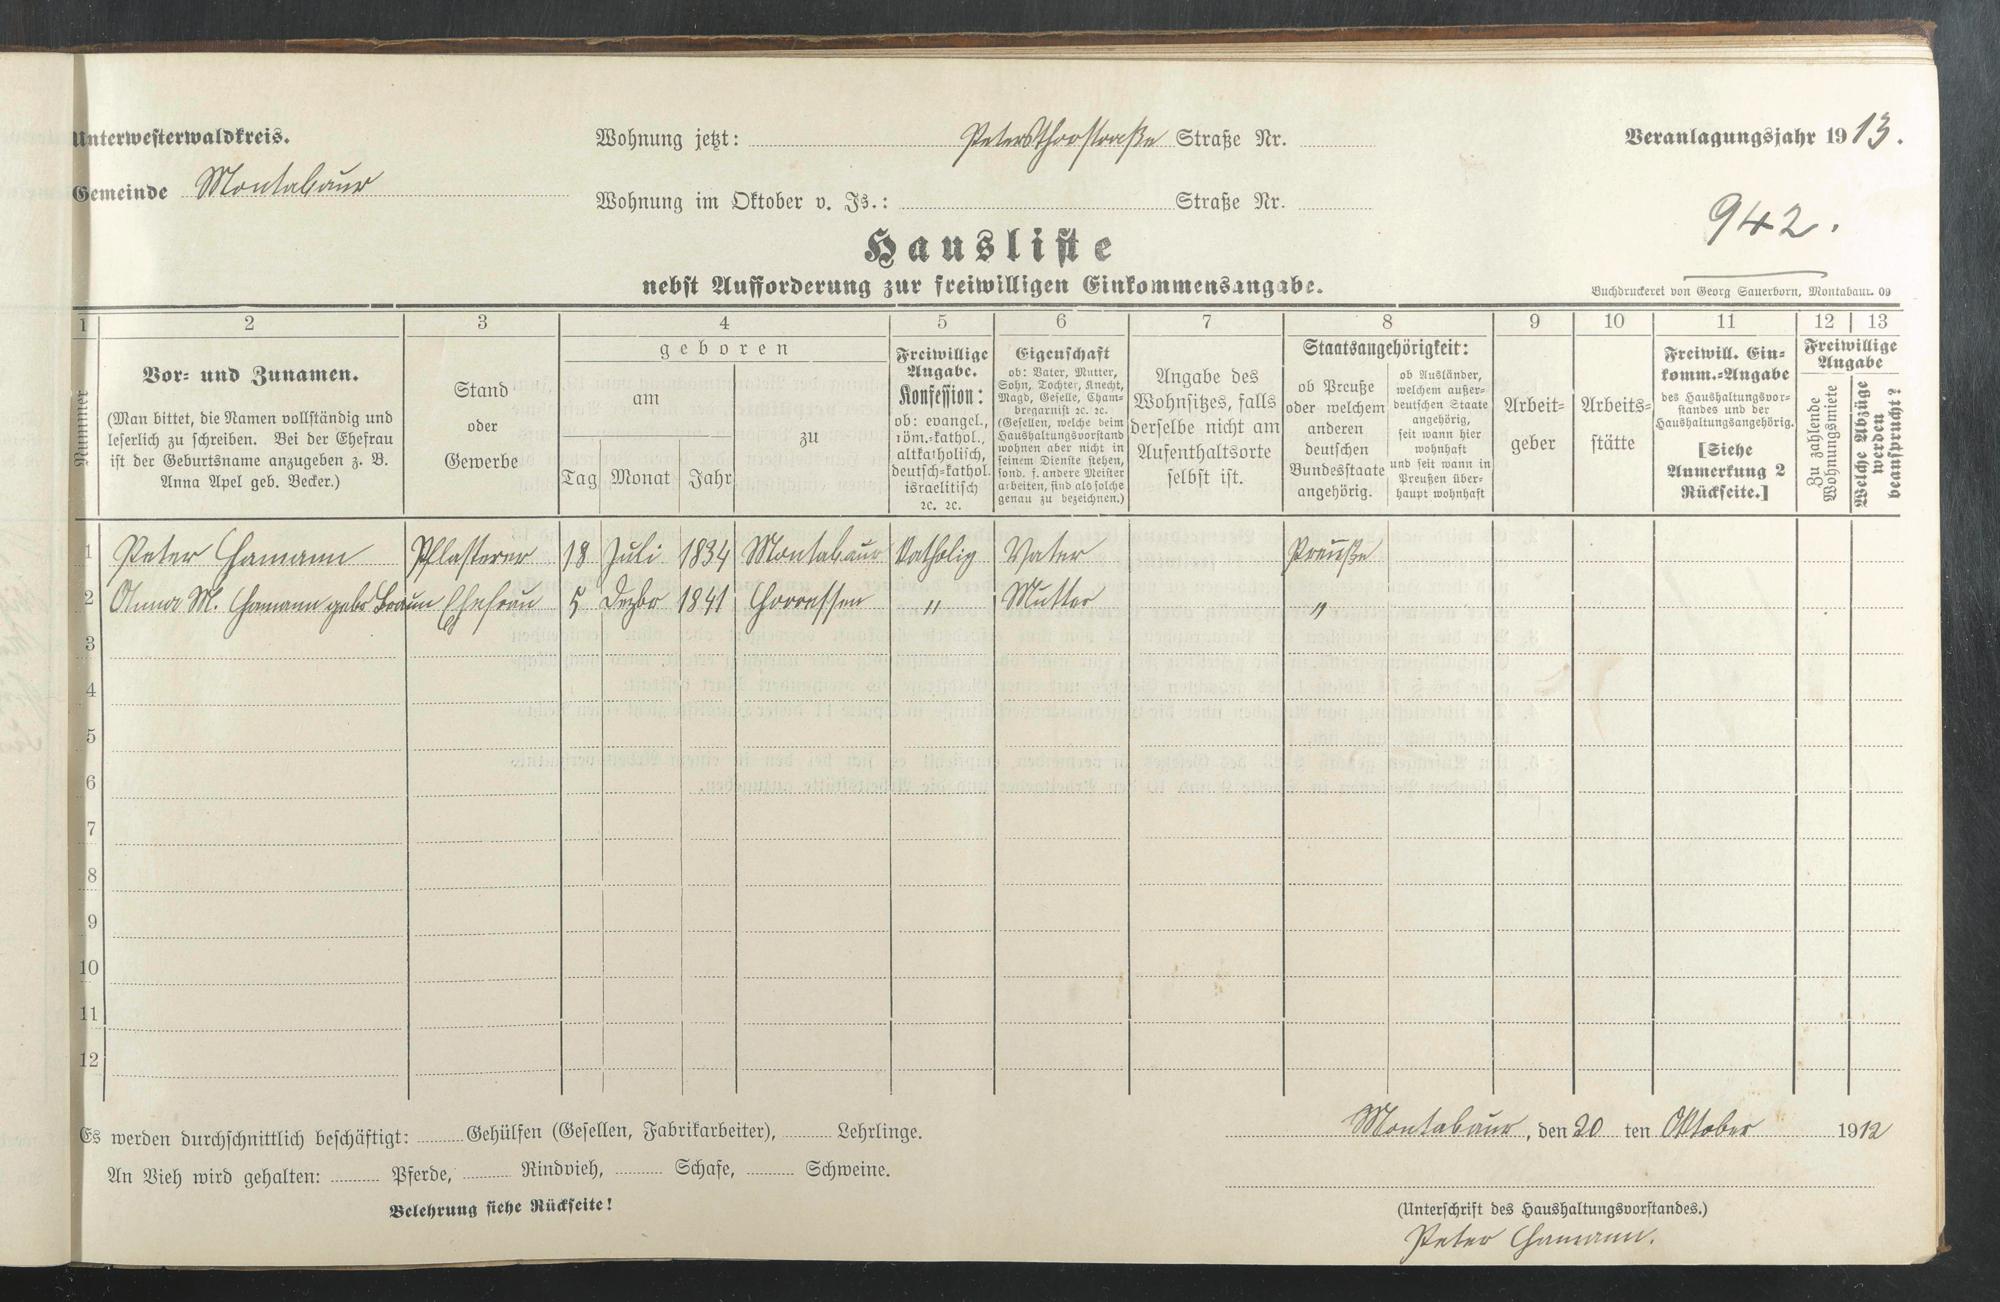 Unterwesterwaldkreis.
Wohnung jetzt: Petersthorstraße Straße Nr.
Veranlagungsjahr 1913.
Gemeinde Montabaur
Wohnung im Oktober v. Js.: Straße Nr.
942.
Hausliste
nebst Aufforderung zur freiwilligen Einkommensangabe.
Buchdruckerei von Georg Sauerborn, Montabaur. 09
1 2 3 4 5 6 7 8 9 10 11 12 13
Nummer
Vor- und Zunamen.
(Man bittet, die Namen vollständig und
leserlich zu schreiben. Bei der Ehefrau
ist der Geburtsname anzugeben z. B.
Anna Apel geb. Becker.)
Stand
oder
Gewerbe
geboren
am
Tag Monat Jahr
zu
Freiwillige
Angabe.
Konfession:
ob: evangel.,
röm.-kathol.,
altkatholisch,
deutsch-kathol.
israelitisch
2c. 2c.
Eigenschaft
ob: Vater, Mutter,
Sohn, Tochter, Knecht,
Magd, Geselle, Cham-
bregarnist 2c. 2c.
(Gesellen, welche beim
Haushaltungsvorstand
wohnen aber nicht in
seinem Dienste stehen,
sond. f. andere Meister
arbeiten, sind als solche
genau zu bezeichnen.)
Angabe des
Wohnsitzes, falls
derselbe nicht am
Aufenthaltsorte
selbst ist.
Staatsangehörigkeit:
ob Preuße
oder welchem
anderen
deutschen
Bundesstaate
angehörig.
ob Ausländer,
welchem außer-
deutschen Staate
angehörig,
seit wann hier
wohnhaft
und seit wann in
Preußen über-
haupt wohnhaft
Arbeit-
geber
Arbeits-
stätte
Freiwill. Ein-
komm.-Angabe
des Haushaltungsvor-
standes und der
Haushaltungsangehörig.
[Siehe
Anmerkung 2
Rückseite.]
Freiwillige
Angabe
Zu zahlende
Wohnungsmiete
Welche Abzüge
werden
beansprucht?
1 Peter Hamann Pflasterer 18 Juli 1834 Montabaur Katholig Vater Preuße
2 Anna M. Hamann gebr Braun Ehefrau 5 Dezbr 1841 Horressen " Mutter "
3
4
5
6
7
8
9
10
11
12
Es werden durchschnittlich beschäftigt: Gehülfen (Gesellen, Fabrikarbeiter), Lehrlinge.
Montabaur, den 20 ten Oktober 1912
An Vieh wird gehalten: Pferde, Rindvieh, Schafe, Schweine.
Belehrung siehe Rückseite!
(Unterschrift des Haushaltungsvorstandes.)
Peter Hamann.